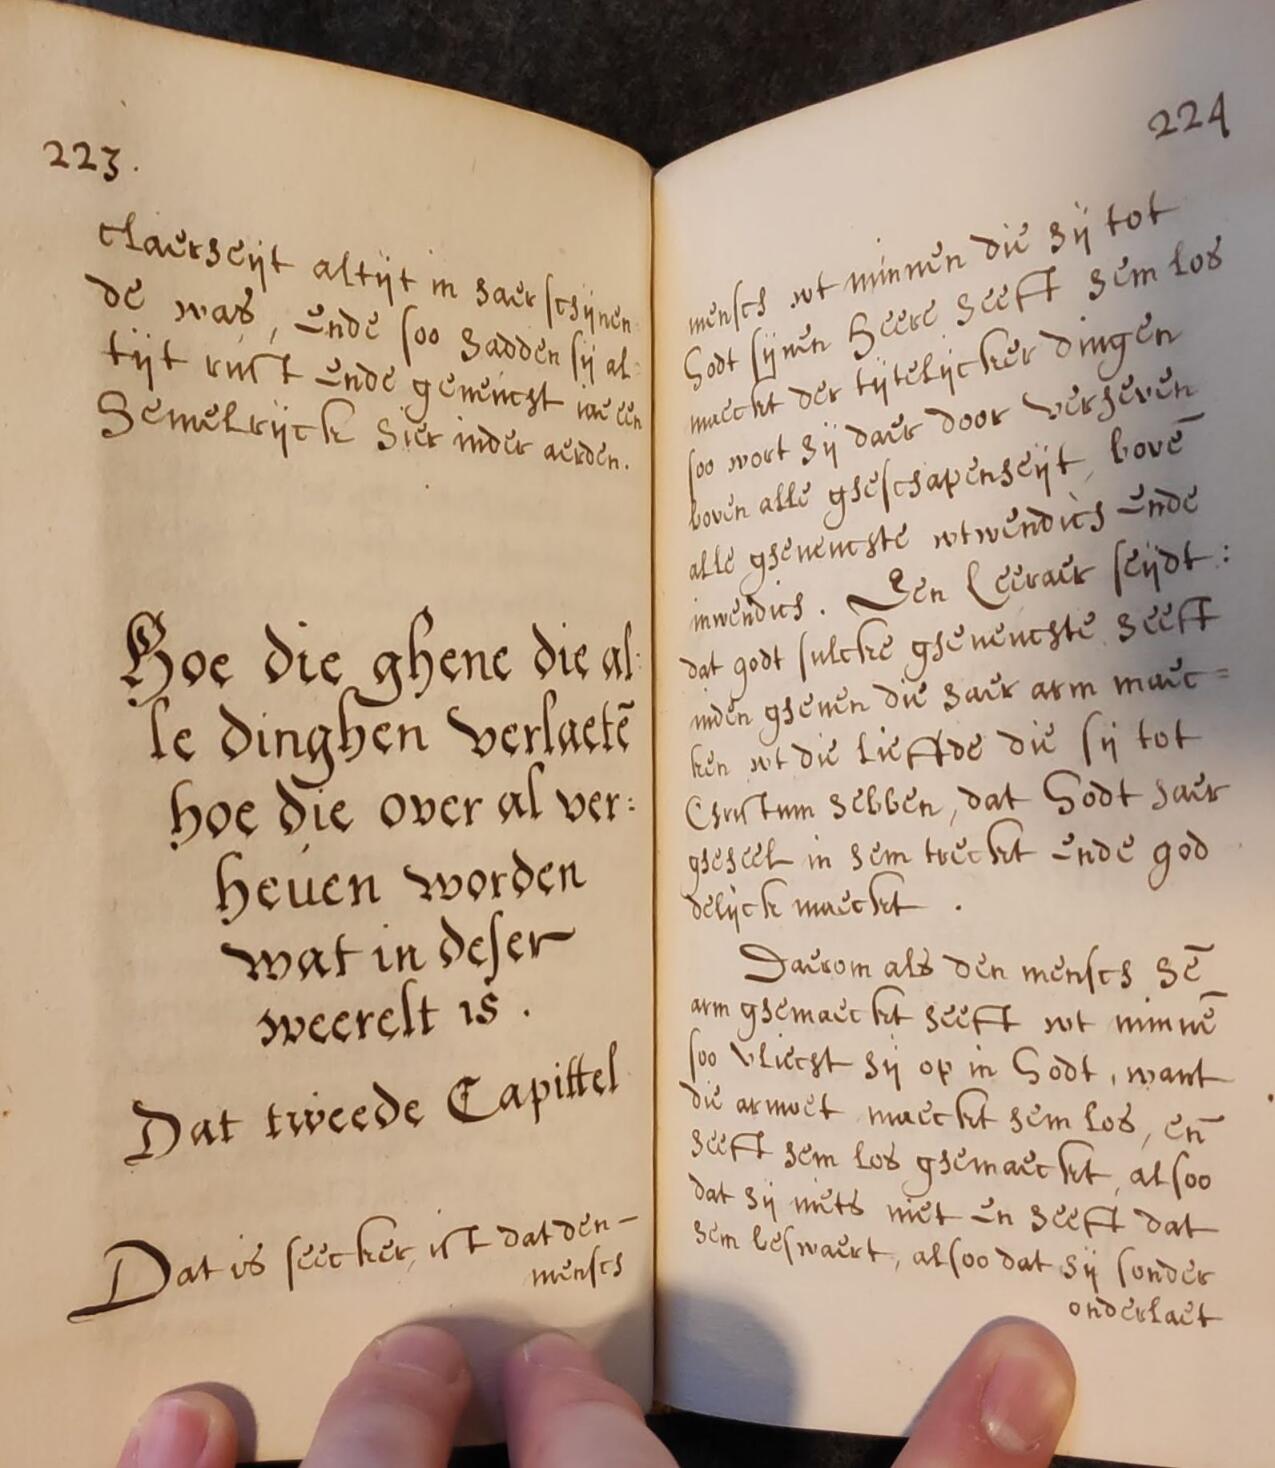 223.
claerheijt altijt in haer schijnen-
de was, ende soo hadden sij al-
tijt rust ende geneucht iae een
Hemelrijck hier inder aerden.
Hoe die ghene die al-
le dinghen verlaetē
hoe die over al ver:
heuen worden
wat in deser
weerelt is.
Dat tweede Capittel
Dat is seecker, ist dat den-
mensch
224
mensch wt minnen die hij tot
Godt sijnen Heere heeft hem los
maeckt der tijtelijcker dingen
soo wort hij daer door verheven
boven alle gheschapenheijt, bovē
alle gheneuchte wtwendich ende
inwendich. Een Leeraer seijdt:
dat godt sulcke gheneuchte heeft
inden ghenen die haer arm maec=
ken wt die Liefde die sij tot
Christum hebben, dat Godt haer
geheel in hem treckt ende god
delijck maeckt.
Daerom als den mensch hē
arm ghemaeckt heeft wt minnē
soo vliecht hij op in Godt, want
die armoet maeckt hem los, eñ
heeft hem los ghemaeckt, alsoo
dat hij niets niet en heeft dat
hem beswaert, alsoo dat hij sonder
onderlaet